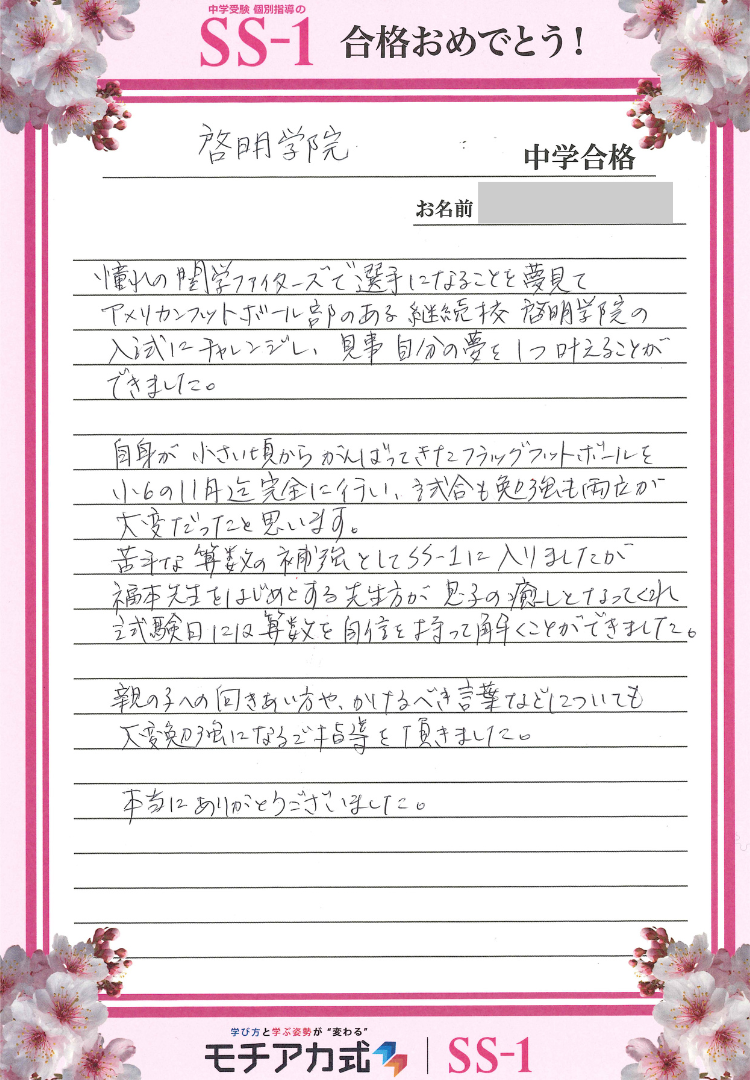 中学受験 個別指導の
SS-1 合格おめでとう!
啓明学院 中学合格
お名前
憧れの関学ファイターズで選手になることを夢見て
アメリカンフットボール部のある継続校 啓明学院の
入試にチャレンジし、見事 自分の夢を1つ叶えることが
できました。
自身が 小さい頃から がんばってきたフラッグフットボールを
小6の11月迄 完全に行い、試合も勉強も両立が
大変だったと思います。
苦手な 算数の 補強としてSS-1に 入りましたが
福本先生をはじめとする 先生方が 息子の癒しとなってくれ
試験日には 算数を自信を持って解くことができました。
親の子への向きあい方や、かけるべき言葉などについても
大変勉強になるご指導を頂きました。
本当にありがとうございました。
学び方と学ぶ姿勢が“変わる”
モチアカ式 SS-1